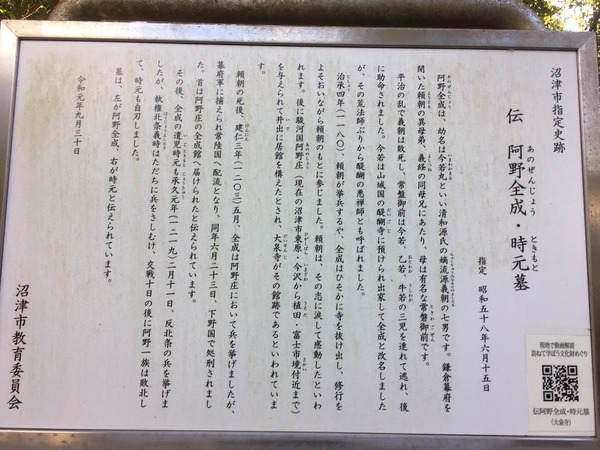 沼津市指定史跡
伝 阿野全成・時元墓
あのぜんじょう ときもと
指定 昭和五十八年六月十五日
阿野全成は、幼名は今若丸といい清和源氏の嫡流源義朝の七男です。鎌倉幕府を
開いた頼朝の異母弟、義経の同母兄にあたり、母は有名な常盤御前です。
平治の乱で義朝は敗死し、常盤御前は今若、乙若、牛若の三児を連れて逃れ、後
に助命されました。今若は山城国の醍醐寺に預けられ出家して全成と改名しました
が、その荒法師ぶりから醍醐の悪禅師とも呼ばれました。
治承四年(一一八〇)、頼朝が挙兵するや、全成はひそかに寺を抜け出し、修行を
よそおいながら頼朝のもとに参じました。頼朝は、その志に涙して感動したといわ
れます。後に駿河国阿野庄(現在の沼津市東原・今沢から植田・富士市境付近まで)
を与えられて井出に居館を構えたとされ、大泉寺がその館跡であるといわれていま
す。
頼朝の死後、建仁三年(一二〇三)五月、全成は阿野庄において兵を挙げましたが、
幕府軍に捕えられ常陸国へ配流となり、同年六月二十三日、下野国で処刑されまし
た。首は阿野庄の全成館へ届けられたと伝えられています。
その後、全成の遺児時元も承久元年(一二一九)二月十一日、反北条の兵を挙げま
したが、執権北条義時はただちに兵をさしむけ、交戦十日の後に阿野一族は敗北し
て、時元も自刃しました。
墓は、左が阿野全成、右が時元と伝えられています。
令和元年九月三十日
沼津市教育委員会
現地で動画解説
訪ねて学ぼう文化財めぐり
伝阿野全成・時元墓
(大泉寺)